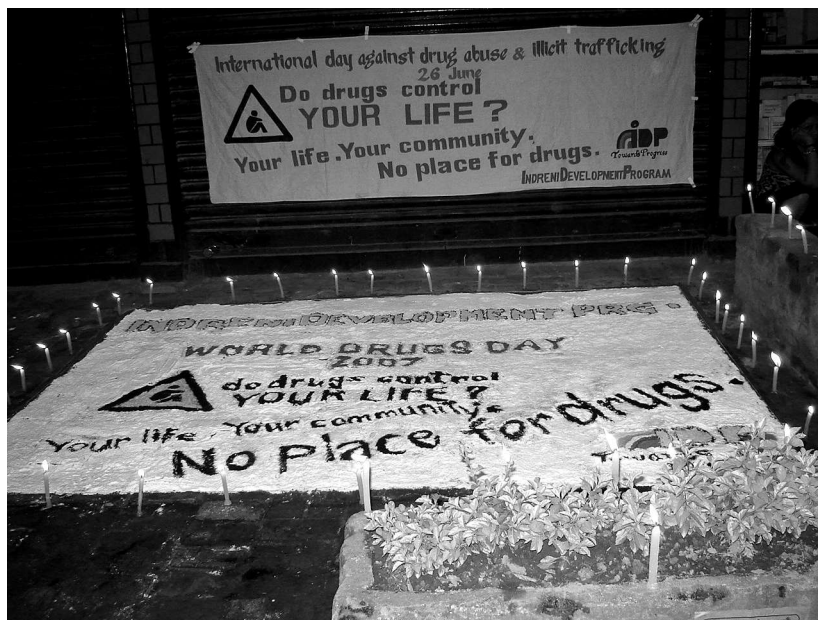 International day against drug abuse & illicit trafficking
26 June
Do drugs control
YOUR LIFE ?
Your life .Your community.
No place for drugs.
IDP
Towards Progress
INDRENI DEVELOPMENT PROGRAM
INDRENI DEVELOPMENT PRG.
WORLD DRUGS DAY
2007
do drugs control
YOUR LIFE ?
Your life . Your community.
No place for drugs.